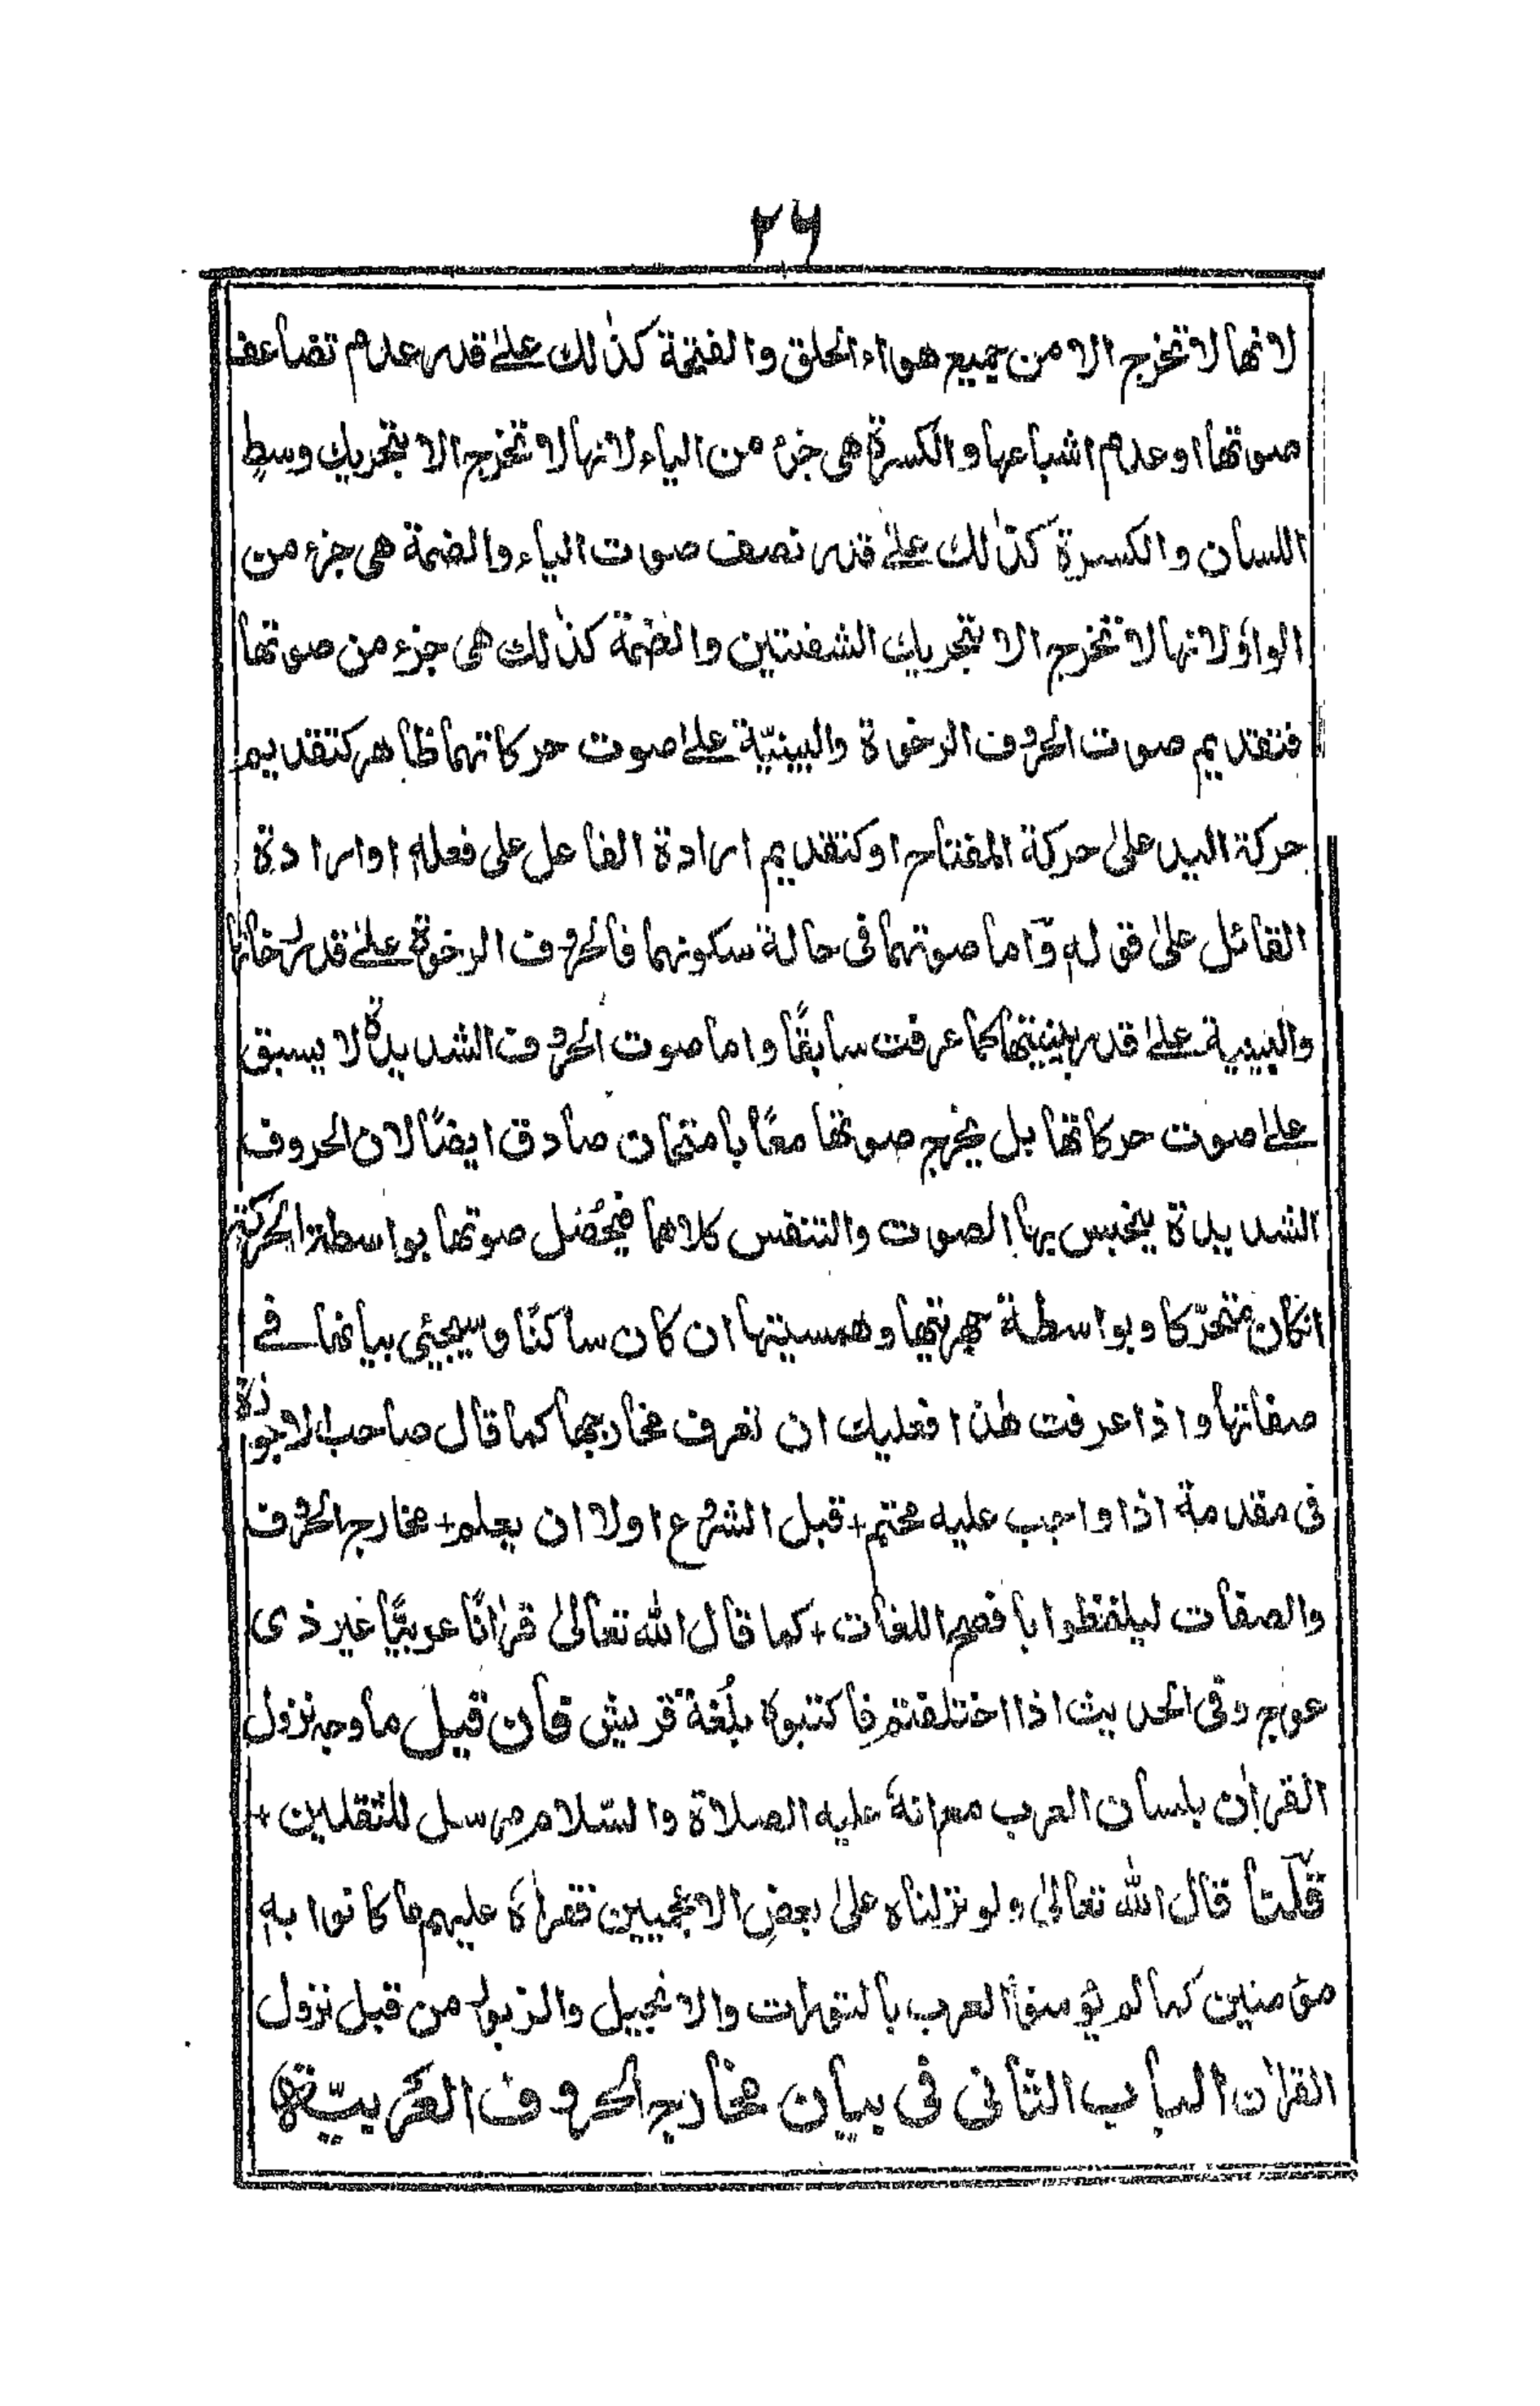 ٢٦
لانها لا تخرج الا من جميع هواء الحلق والفتحة كذٰلك علىٰ قدر عدم تضاعف
صوتها او عدم اشباعها والكسرة هى جزء من الياء لانها لا تخرج الا بتحريك وسطِ
اللسان والكسرة كذٰلك علىٰ قدر نصف صوت الياء والضمة هى جزء من
الواوَ لانها لا تخرج الا بتحريك الشفتين والضمّة كذٰلك هى جزء من صوتها
فتقديم صوت الحروف الرخوة والبينيّة علىٰ صوت حركاتهما ظاهر كتقديم
حركة اليد علىٰ حركة المفتاح او كتقديم ارادة الفاعل على فعلهٖ او ارادة
القائل علىٰ قولهٖ وَاما صوتهما فى حالة سكونهما فالحروف الرخوة علىٰ قدر رخاتها
والبينية علىٰ قدر بينيتها كما عرفت سابقًا واما صوت الحروف الشديدة لا يسبق
علىٰ صوت حركاتها بل يخرج صوتها معًا بامتحان صادق ايضًا لان الحروف
الشديدة ينحبس بها الصوت والتنفس كلاهما فيحُصَل صوتها بواسطة الحركة
انكان متحرّكا وبواسطة جهريتها وهمسيتها ان كان ساكنًا وسيجئى بيانها فے
صفاتها واذا عرفت هٰذا فعليك ان تعرف مخارجها كما قال صاحب الاجوازة
فى مقدمة اذا واجب عليه محتم + قبل الشروع اولا ان يعلم + مخارج الحروف
والصفات ليلفظوا بافصح اللغات + كما قال الله تعالىٰ قراٰنًا عربيًّا غير ذى
عوج وفى الحديث اذا اختلفتم فاكتبوه بلُغة قريش فان قيل ما وجه نزول
القراٰن بلسان العرب مع انهٗ عليه الصلاة والسّلام مرسل للثقلين +
قلنا قال الله تعالىٰ ولو نزلناه علىٰ بعضِ الاعجميين فقراَهٗ عليهم ما كانوا بهٖ
مؤمنين كما لم يؤمنوا العرب بالتورات والانجيل والزبور من قبل نزول
القراٰن الباب الثانى فى بيان مخارج الحروف العربيّة